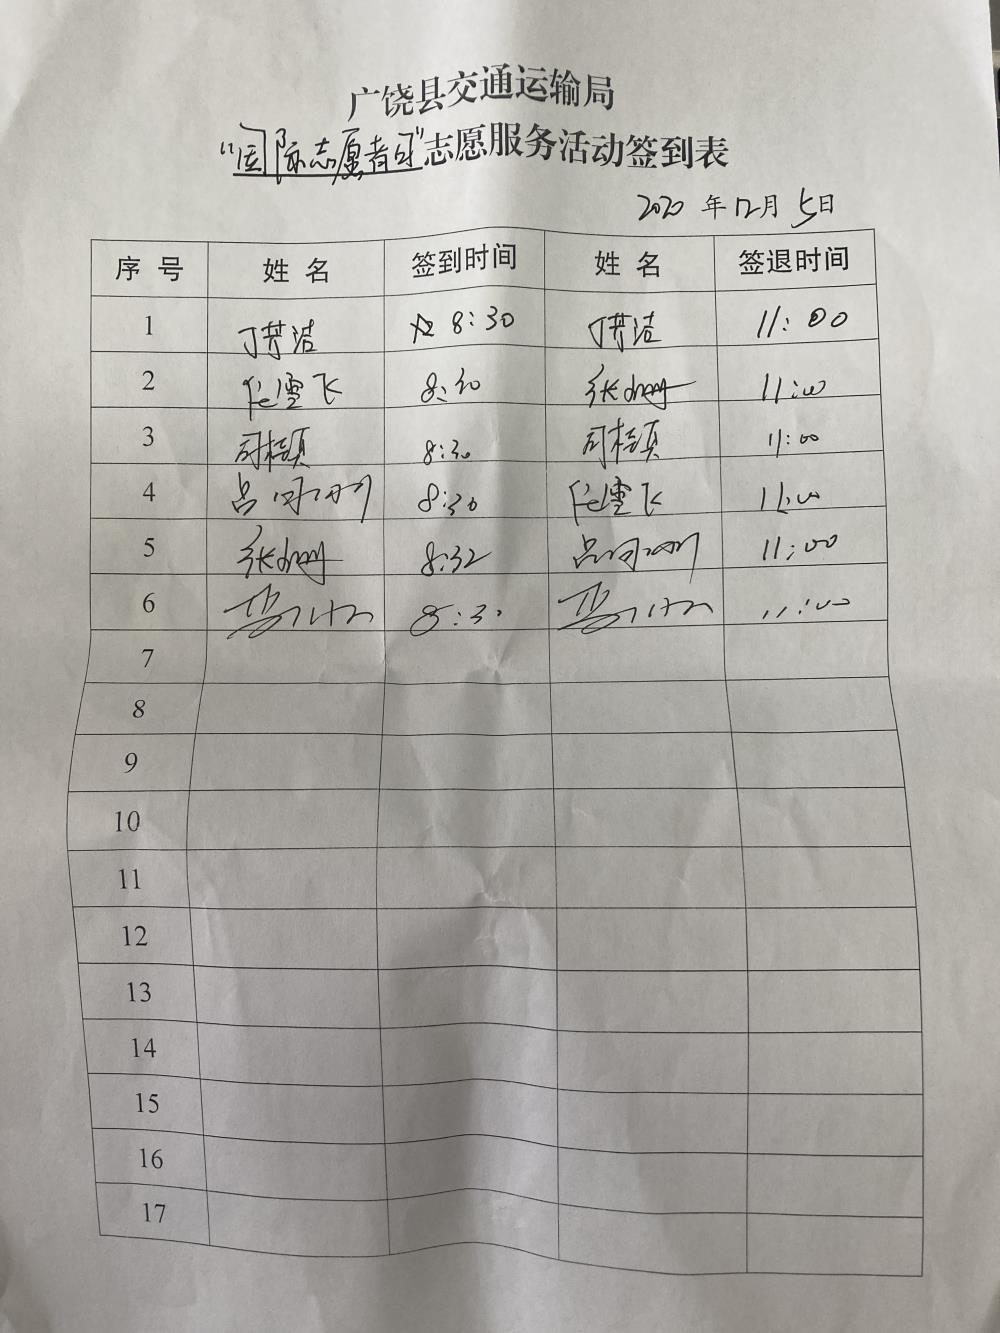 广饶县交通运输局
“国际志愿者日”志愿服务活动签到表
2020 年 12 月 5 日
序 号 姓 名 签到时间 姓 名 签退时间
1 丁芳洁 8:30 丁芳洁 11:00
2 任雪飞 8:30 张 11:00
3 司桂贞 8:30 司桂贞 11:00
4 吕 8:30 任雪飞 11:00
5 张 8:32 吕 11:00
6 8:30 11:00
7
8
9
10
11
12
13
14
15
16
17